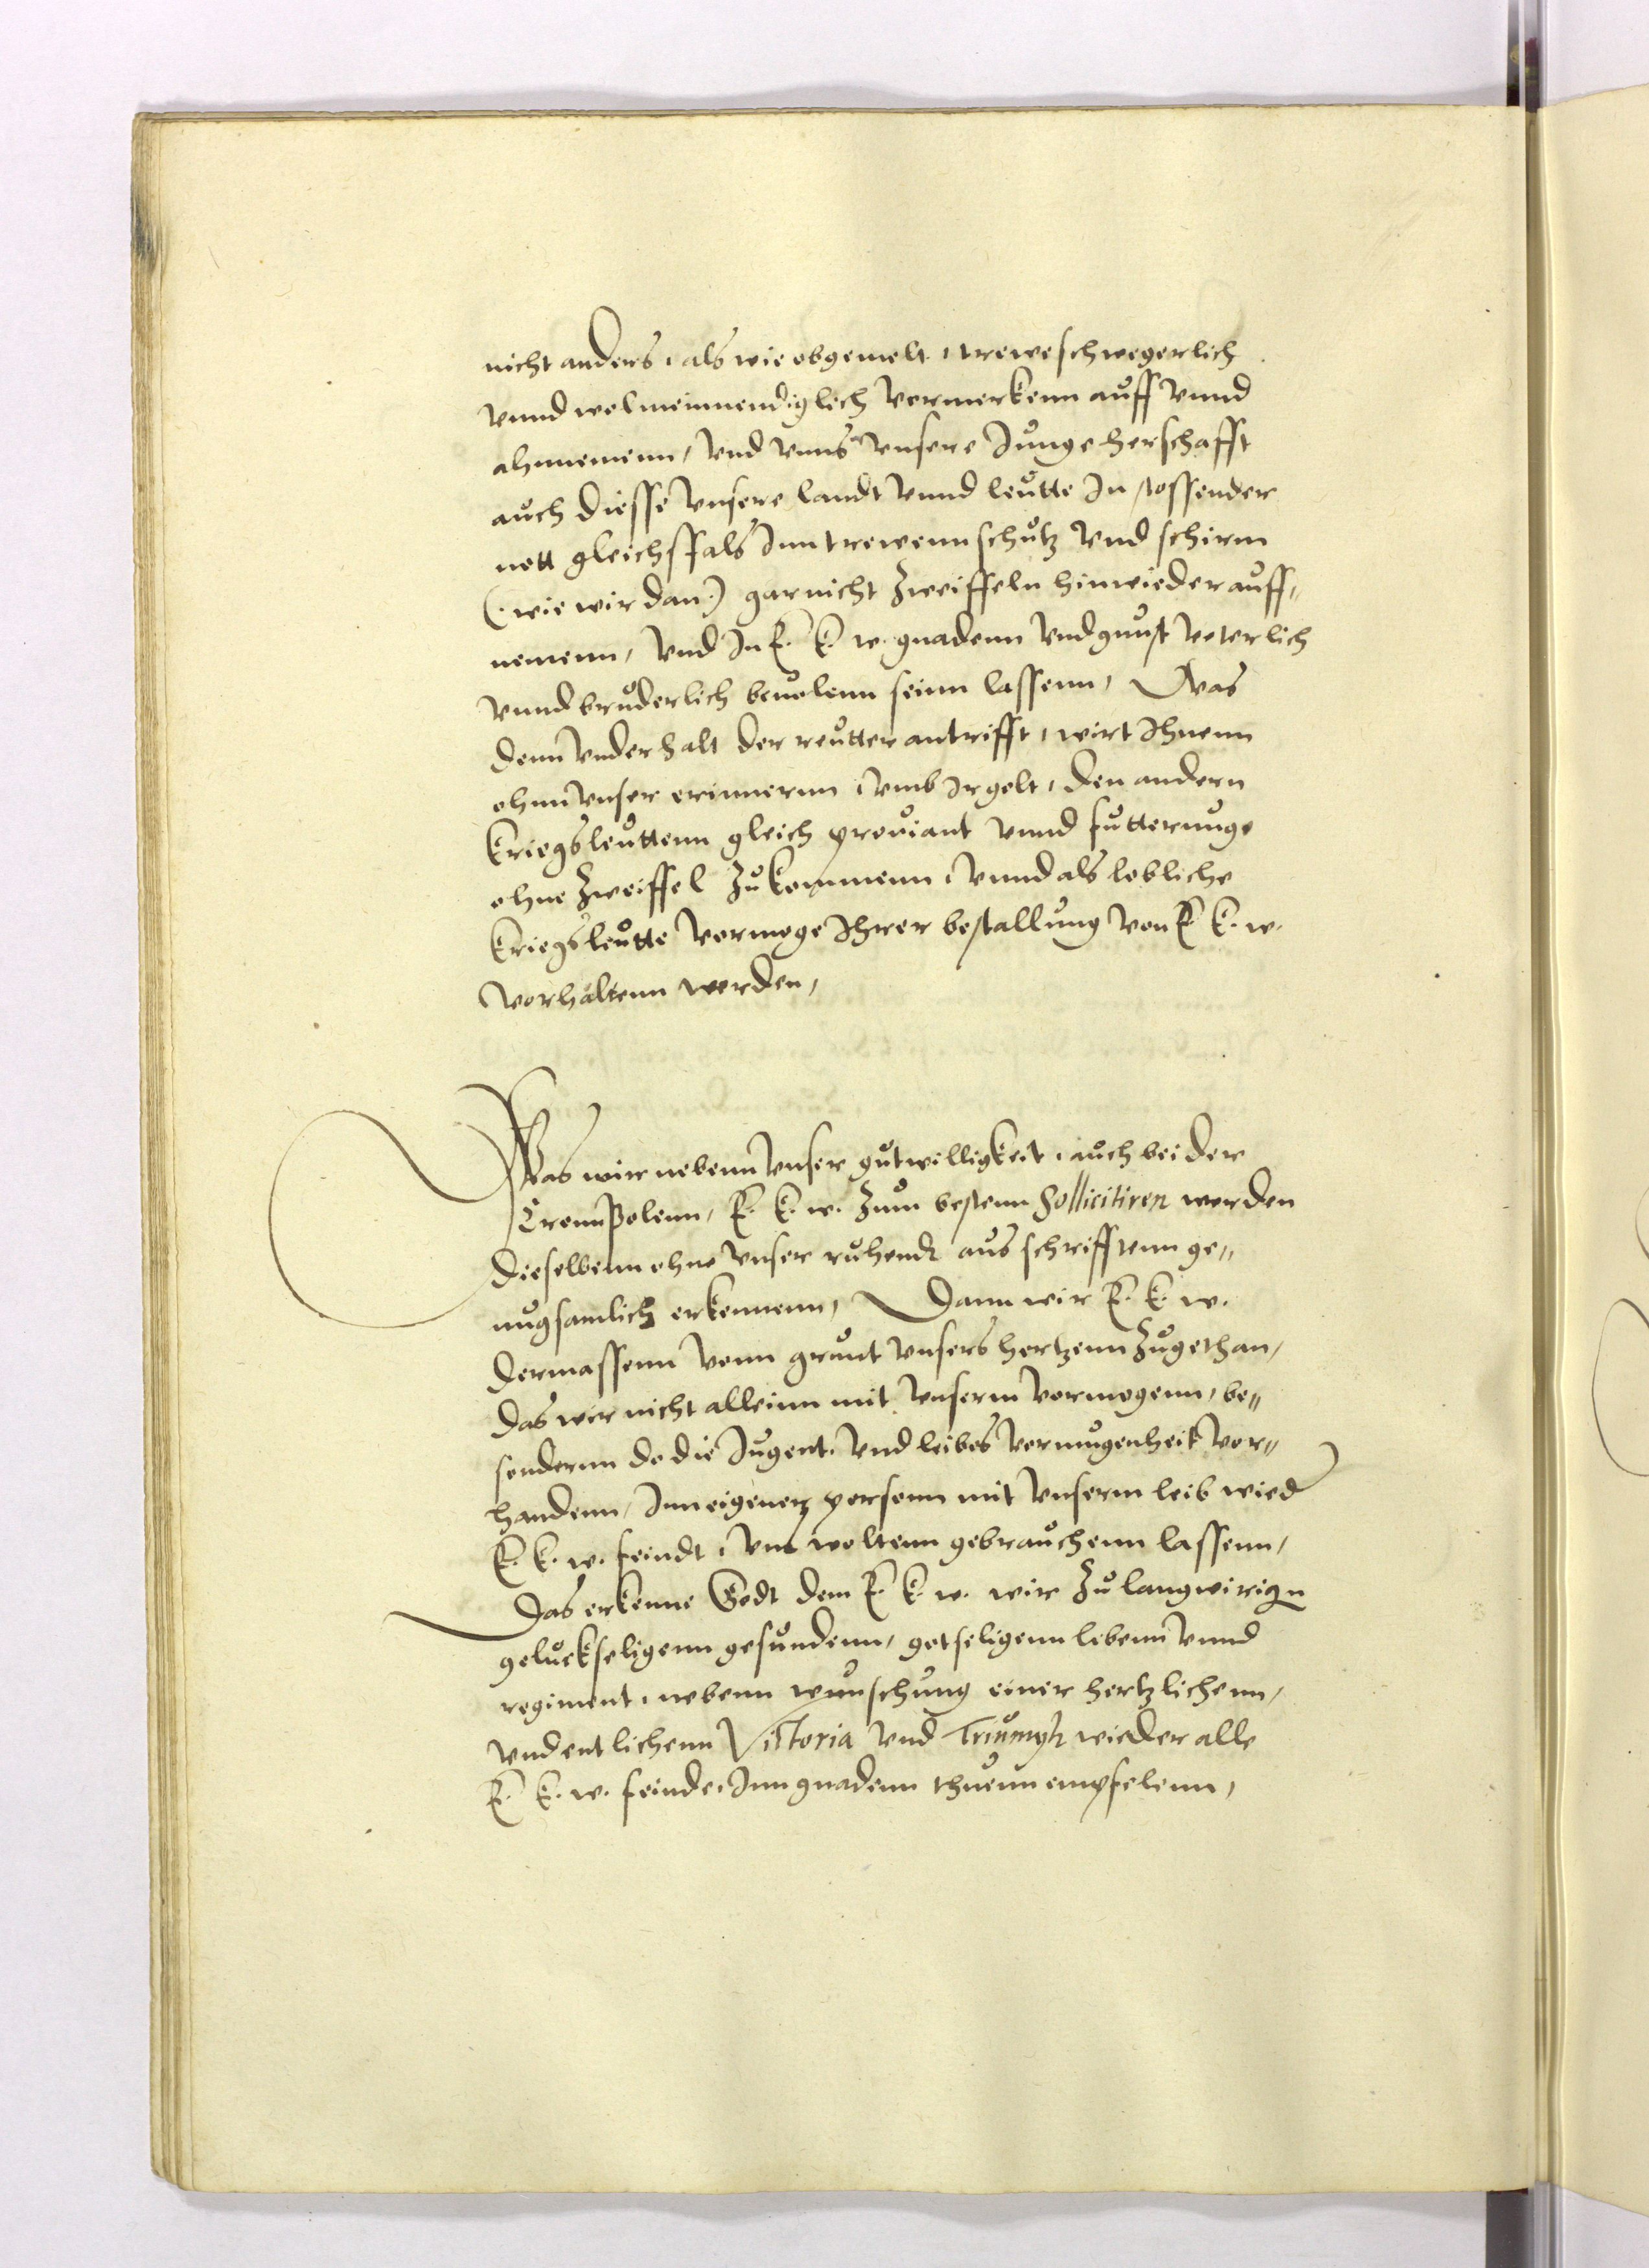 nicht anders, als wie obgemelt, treweschwegerlich
vnnd wolmeinnendiglich vermerkenn auff vnnd
ahnnemenn, vnd vnns vnsere Junge herschafft
auch diesse vnsere landt vnnd leutte In stossender
nott gleichsfals Inn trewenn schutz vnd schirm
(: wie wir dan :) gar nicht Zweiffeln hinwieder auff,,
nemenn, vnd In E. k. w. gnadenn vnd gunst veterlich
vnnd bruderlich beuolenn seinn lassenn, Was
denn vnderhalt der reutter antrifft, wirt Ihnenn
ohnn vnser erinnernn, vmb Ir gelt, den andern
kriegsleuttenn gleich prouiant vnnd futterunge
ohne Zweiffel Zukommenn, vnnd als lobliche
kriegsleutte vermoge Ihrer bestallung von E. k. w.
vorhaltenn werden,
Was wir nebenn vnser gutwilligkeit, auch bei der
Cronn Polenn, E. k. w. Zum bestenn Sollicitiren werden
dieselbenn ohne vnser ruhend aus schrifftenn ge,,
nugsamlich erkennenn, Dann wir E. k. w.
dermassenn vonn grunt vnsers hertzenn Zugethan,
das wir nicht alleinn mit vnserm vormogenn, be,,
sondernn do die Jugent, vnd leibes vormugenheit vor,,
handenn, Inn eigener personn mit vnserm leib wied
E. k. w. feindt, vns woltenn gebrauchenn lassenn,
Das erkenne Godt dem E. k. w. wir Zu langwirign
gelueckseligenn gesundenn, gotseligenn lebenn vnnd
regiment, nebenn wunschung einer hertzlichenn,
vnd entlichenn Victoria vnd Triumph wieder alle
E. k. w. feinde, Inn gnadenn thuenn empfelenn,